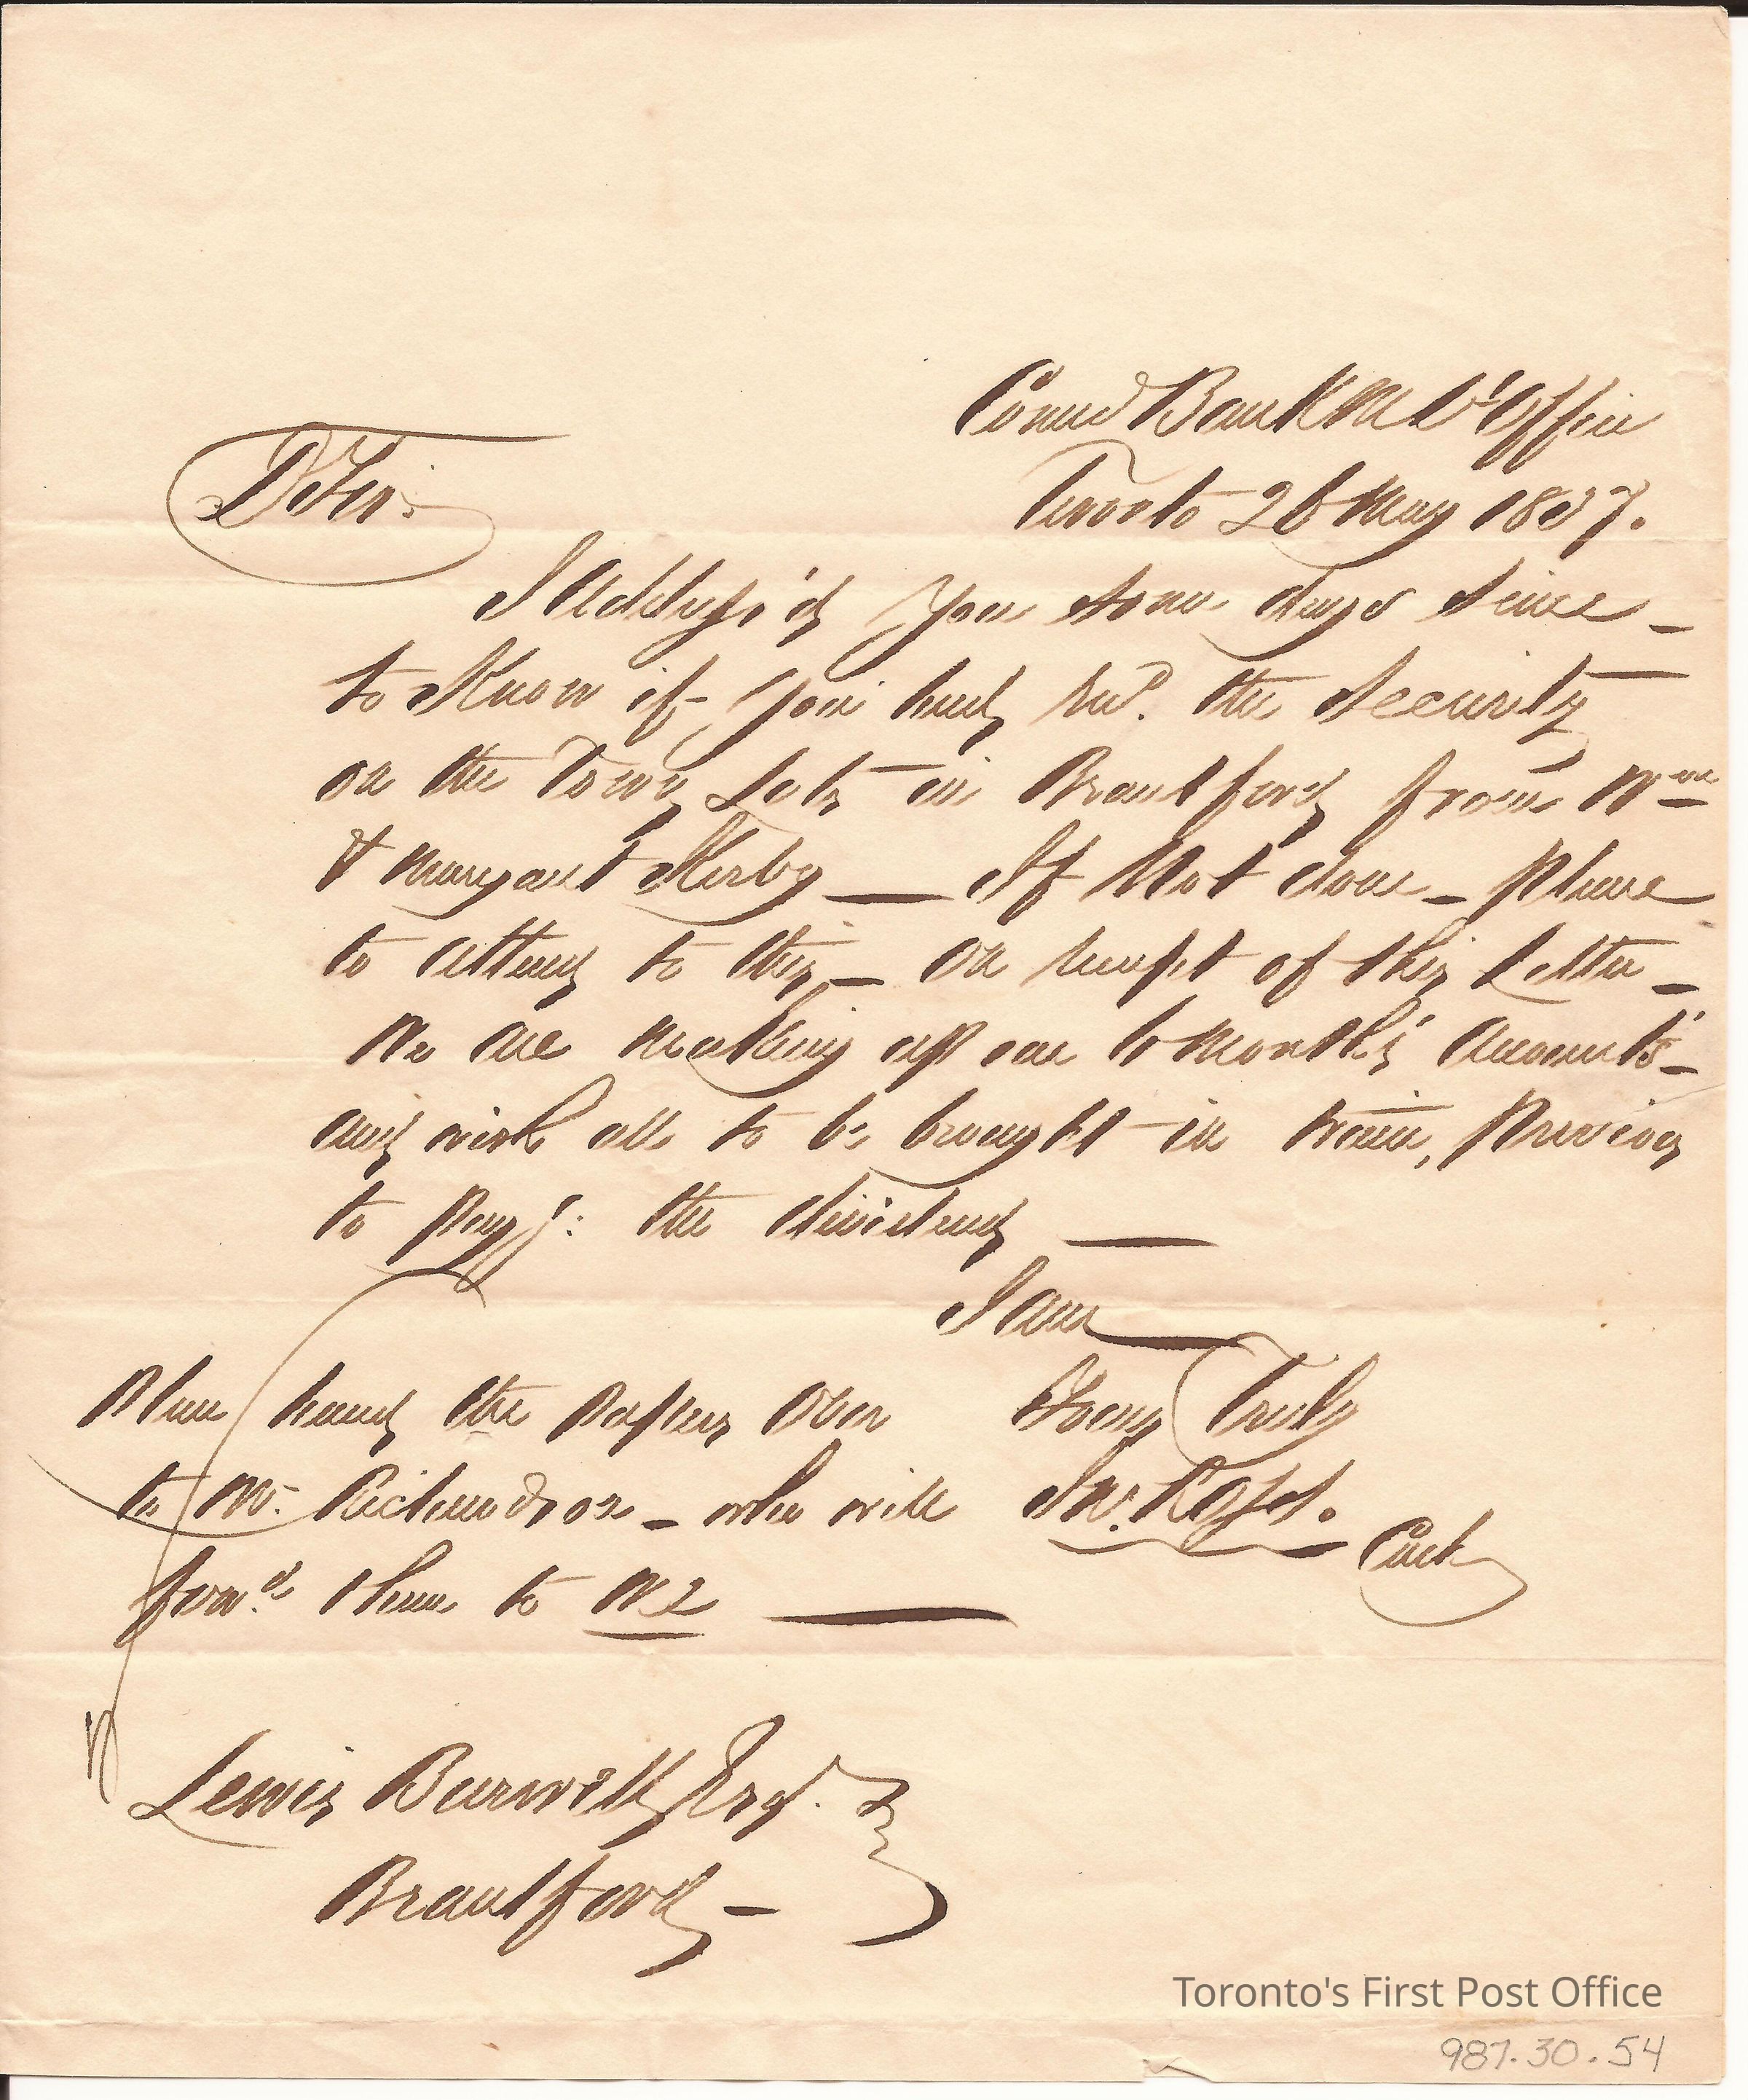 Comm<sup>l</sup> Bank M D Office
Toronto 26 May 1837.
D Sir.
I Address'd you some days since –
to Know if you had Rec<sup>d</sup>. the Security
on the Town Lots in Brantford from W<sup>m</sup>
& Margaret Kerby — If Not done – please
to attend to this – on receipt of this Letter –
We are making up our 6 Month's Accounts –
and wish all to be brought in train, Previous
to Pay<sup>g</sup>: the dividend —
I am
Yours Truly
Please hand the Papers Over
to Mr. Richardson – who will
forw<sup>d</sup>. them to us —
Cash
Lewis Burwell Esq<sup>r</sup>.
Brantford –
Toronto's First Post Office
987.30.54